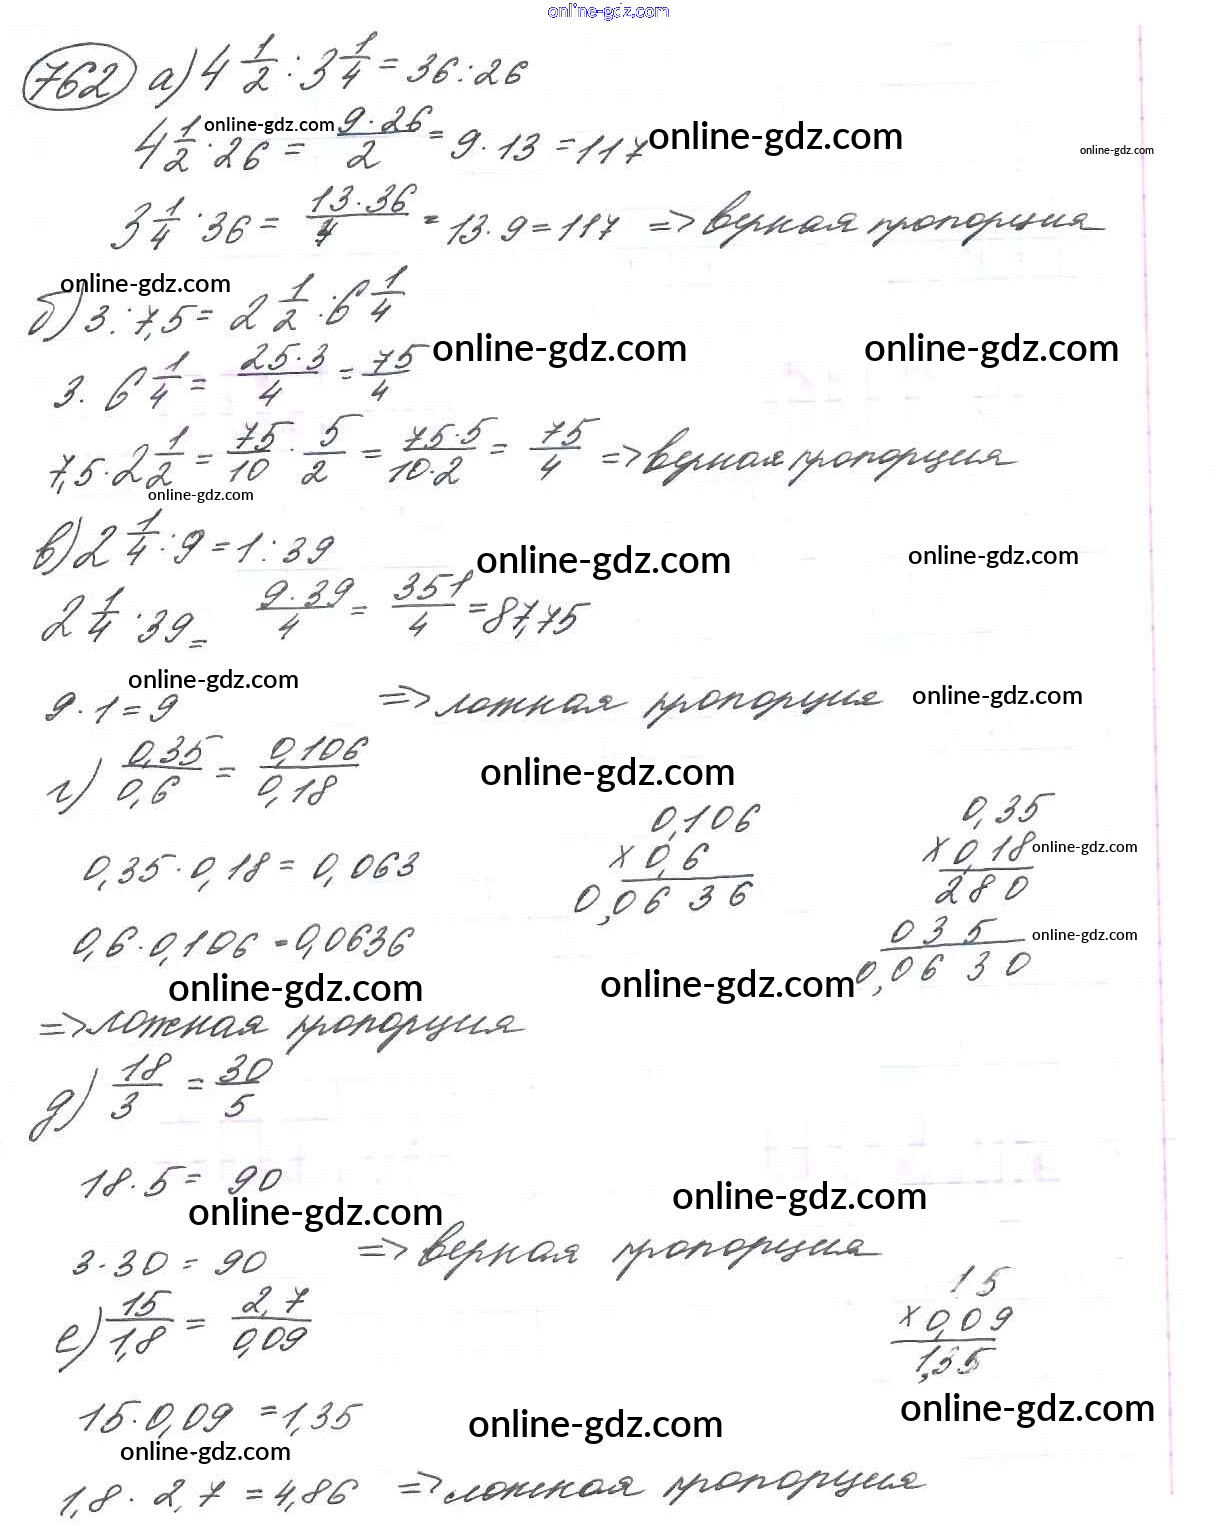 online-gdz.com
762 а) 4 1/2 : 3 1/4 = 36 : 26
4 1/2 · 26 = 9·26/2 = 9·13 = 117
online-gdz.com online-gdz.com online-gdz.com
3 1/4 · 36 = 13·36/4 = 13·9 = 117 => верная пропорция
online-gdz.com
б) 3 : 7,5 = 2 1/2 : 6 1/4
online-gdz.com online-gdz.com
3 · 6 1/4 = 25·3/4 = 75/4
7,5 · 2 1/2 = 75/10 · 5/2 = 75·5/10·2 = 75/4 => верная пропорция
online-gdz.com
в) 2 1/4 : 9 = 1 : 39
online-gdz.com online-gdz.com
2 1/4 · 39 = 9·39/4 = 351/4 = 87,75
online-gdz.com online-gdz.com
9 · 1 = 9 => ложная пропорция
г) 0,35/0,6 = 0,106/0,18
online-gdz.com
0,35 · 0,18 = 0,063
0,106
× 0,6
0,0636
0,35
× 0,18
online-gdz.com
280
035
online-gdz.com
0,0630
0,6 · 0,106 = 0,0636
online-gdz.com online-gdz.com
=> ложная пропорция
д) 18/3 = 30/5
18 · 5 = 90
online-gdz.com online-gdz.com
3 · 30 = 90 => верная пропорция
е) 15/1,8 = 2,7/0,09
15
× 0,09
1,35
15 · 0,09 = 1,35
online-gdz.com online-gdz.com online-gdz.com
1,8 · 2,7 = 4,86 => ложная пропорция